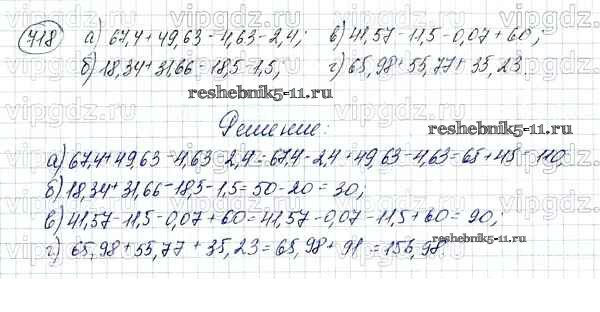 718 а) 67,4+49,63-4,63-2,4; в) 41,57-11,5-0,07+60;
б) 18,34+31,66-18,5-1,5; г) 65,98+55,77+35,23.
reshebnik5-11.ru
reshebnik5-11.ru
Решение:
reshebnik5-11.ru
а) 67,4+49,63-4,63-2,4=67,4-2,4+49,63-4,63=65+45=110;
б) 18,34+31,66-18,5-1,5=50-20=30;
в) 41,57-11,5-0,07+60=41,57-0,07-11,5+60=90;
reshebnik5-11.ru
г) 65,98+55,77+35,23=65,98+91=156,98
vipgdz.com